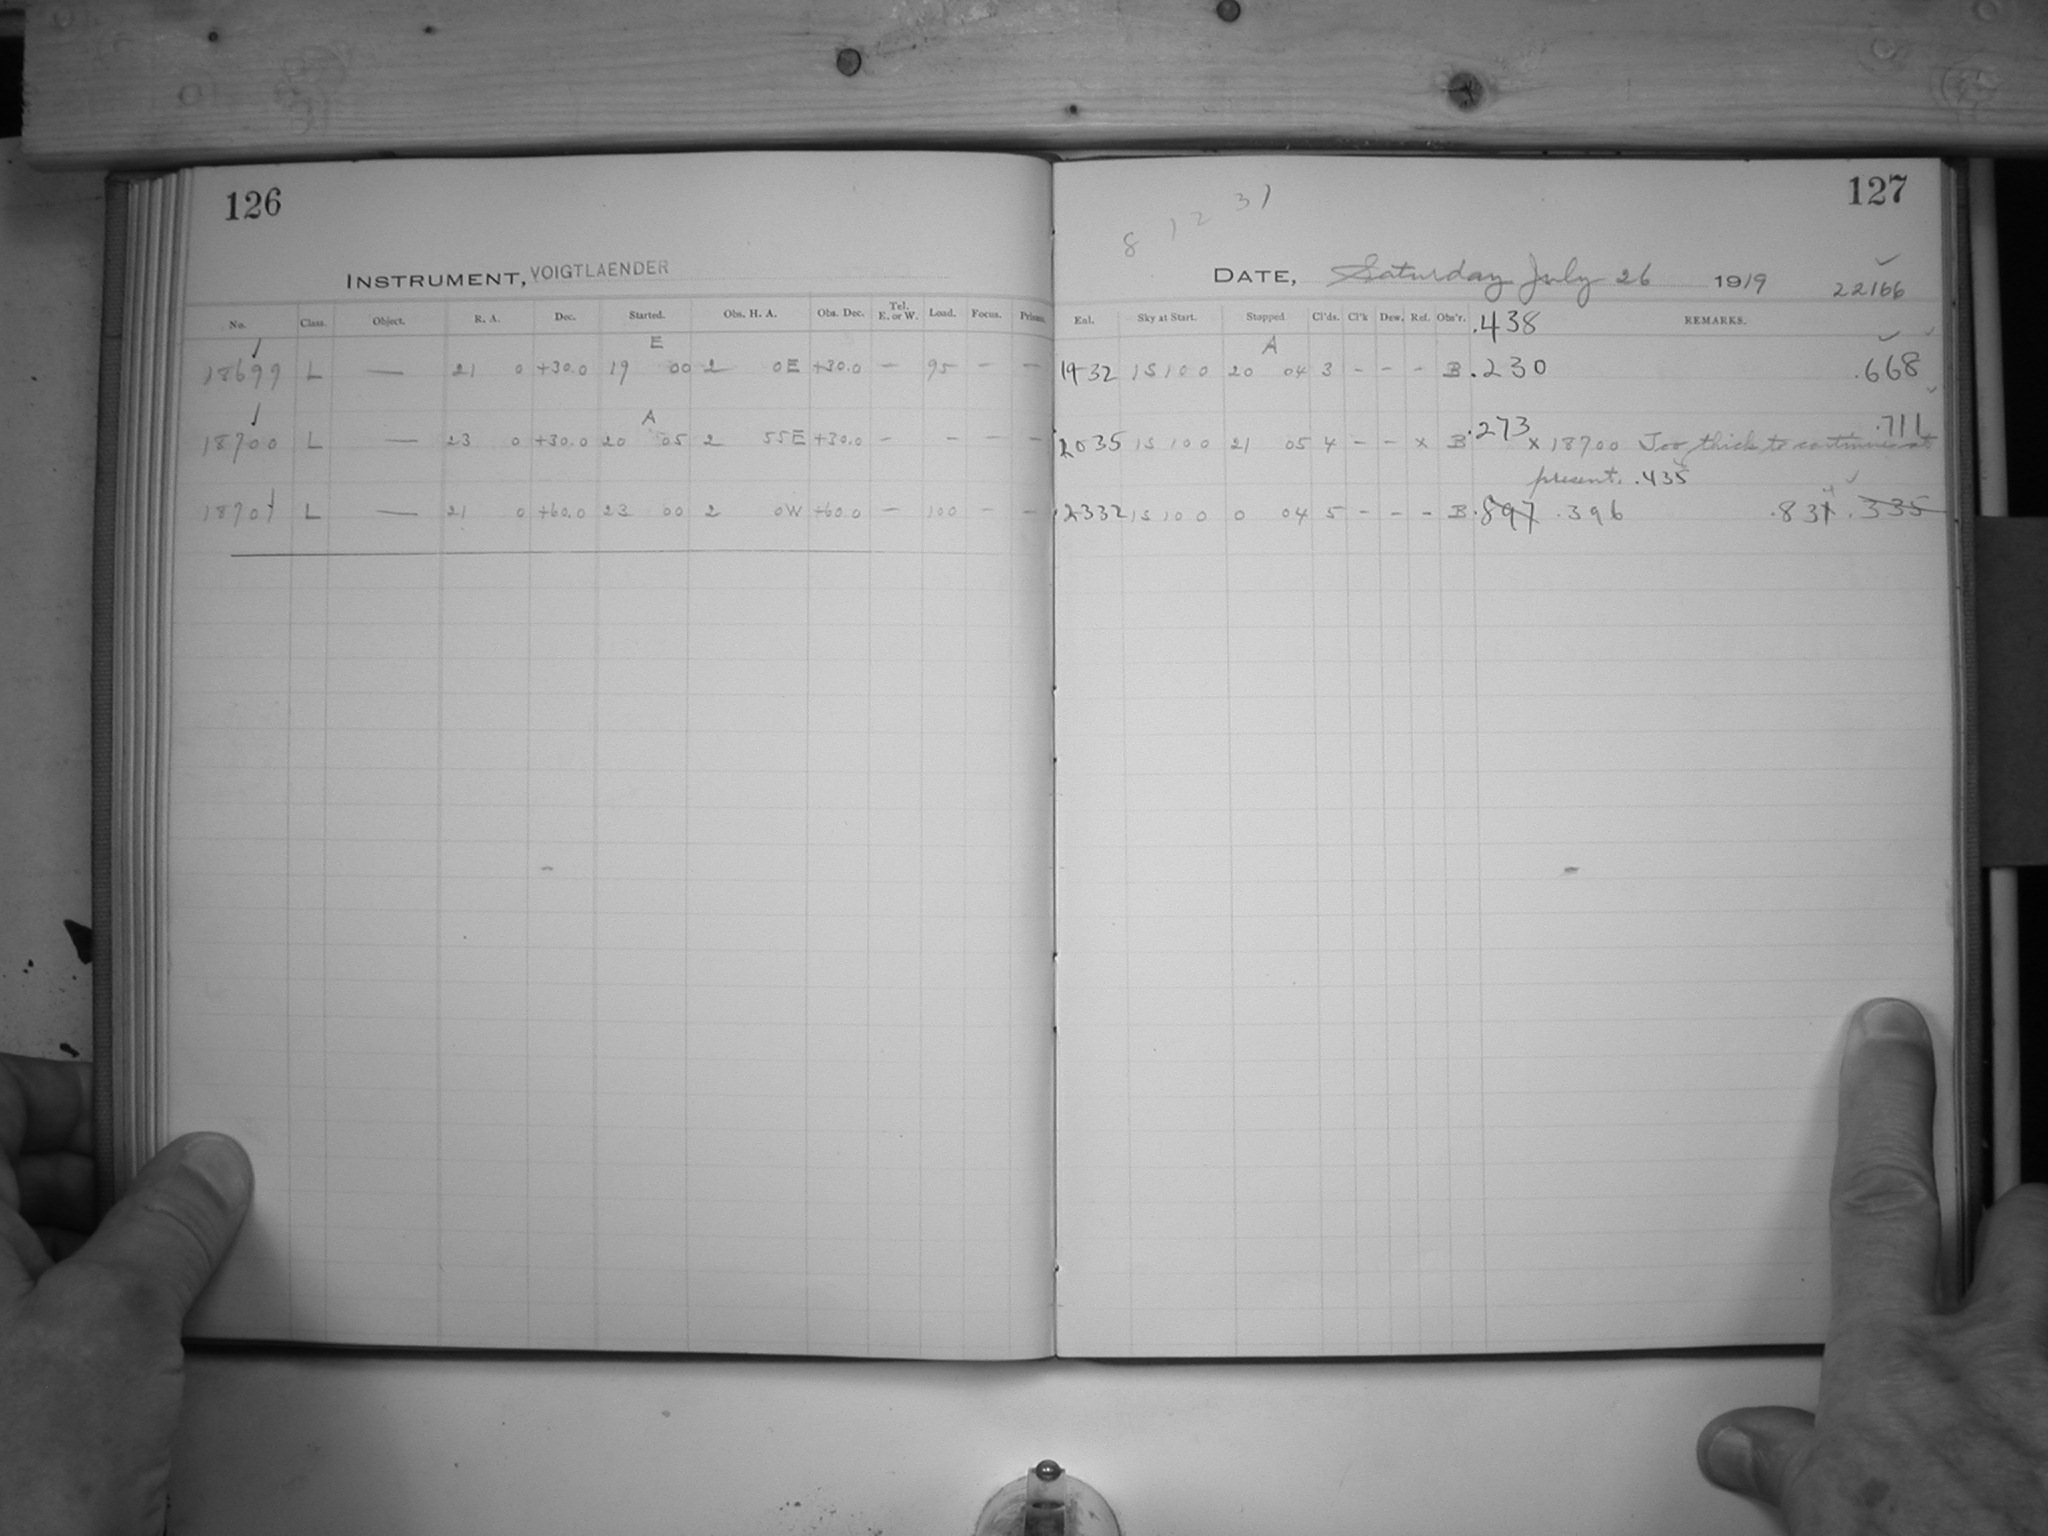 126
INSTRUMENT, VOIGTLAENDER
No. Class. Object. R. A. Dec. Started. Obs. H. A. Obs. Dec. Tel. E. or W. Load. Focus. Prisms.
E
18699 L — 21 0 +30.0 19 00 2 0E +30.0 — 95 — —
A
18700 L — 23 0 +30.0 20 05 2 55E +30.0 — — — —
18701 L — 21 0 +60.0 23 00 2 0W +60.0 — 100 — —
127
8 12 31
DATE, Saturday July 26 1919
22166
Enl. Sky at Start. Stopped Cl'ds. Cl'k Dew. Ref. Obs'r. .438 REMARKS.
A
1932 15 100 20 04 3 - - - B .230 .668
2035 15 100 21 05 4 - - x B .273 x 18700 Too thick to continue at .711
present. .435
2332 15 100 0 04 5 - - - B .897 .396 .831 .335